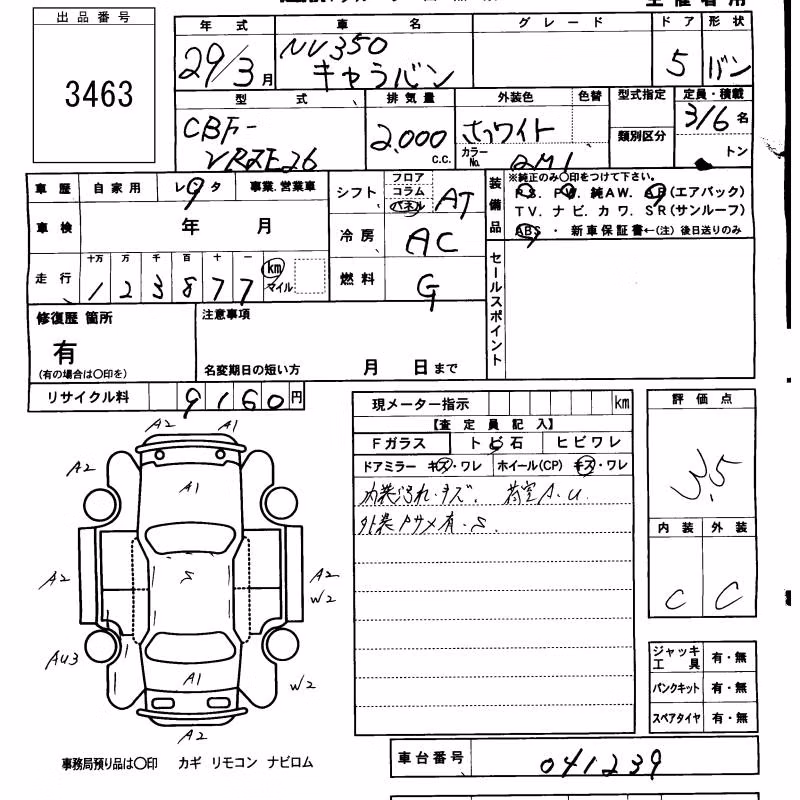 出品番号
3463
年式 車名 グレード ドア 形状
29/3月 NV350 キャラバン 5 バン
型式 排気量 外装色 色替 型式指定 定員・積載
CBF-VRZE26 2,000 c.c. ホワイト 類別区分 3/6名
カラーNo. QM1 トン
車歴 自家用 レンタ 事業、営業車 シフト フロア コラム パネル AT
装備品 ※純正のみ〇印をつけて下さい。
PS. PW. 純AW. AB(エアバック)
TV. ナビ. カワ. SR(サンルーフ)
ABS ・ 新車保証書←(注) 後日送りのみ
車検 年 月 冷房 AC
走行 十万 万 千 百 十 一 km マイル 燃料 G
123877
セールスポイント
修復歴 箇所 注意事項
有
(有の場合は〇印を) 名変期日の短い方 月 日まで
リサイクル料 9160円
現メーター指示 km
評価点
3.5
【査定員記入】
Fガラス トビ石 ヒビワレ
ドアミラー キズ・ワレ ホイール(CP) キズ・ワレ
内装汚れ・キズ、 荷室A.U.
外装クサメ有・S.
内装 外装
C C
A2 A1
A2
A1
S
A2 A2
W2
AU3
W2
A1
A2
ジャッキ工具 有・無
パンクキット 有・無
スペアタイヤ 有・無
事務局預り品は〇印 カギ リモコン ナビロム
車台番号 041239